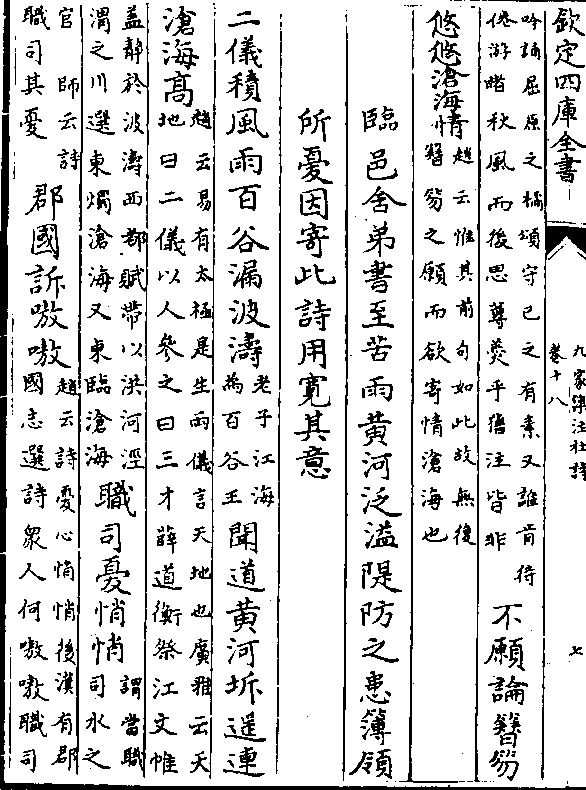 欽定四庫全書
九家集注杜詩
卷十八
七
吟誦屈原之橘頌守已之有素又誰肯待
倦游睹秋風而後思蓴羮乎舊注皆非
不願論簪笏
悠悠滄海情
趙云惟其前句如此故無後
簪笏之願而欲寄情滄海也
臨邑舍弟書至苦雨黄河泛溢隄防之患簿領
所憂因寄此詩用寛其意
二儀積風雨百谷漏波濤
老子江海
為百谷王
聞道黄河坼遥連
滄海高
趙云易有太極是生兩儀言天地也廣雅云天
地曰二儀以人參之曰三才薛道衡祭江文帷
蓋静於波濤西都賦帶以洪河涇
渭之川選東燭滄海又東臨滄海
職司憂悄悄
謂當職
司水之
官師云詩
職司其憂
郡國訴嗷嗷
趙云詩憂心悄悄後漢有郡
國志選詩衆人何嗷嗷職司